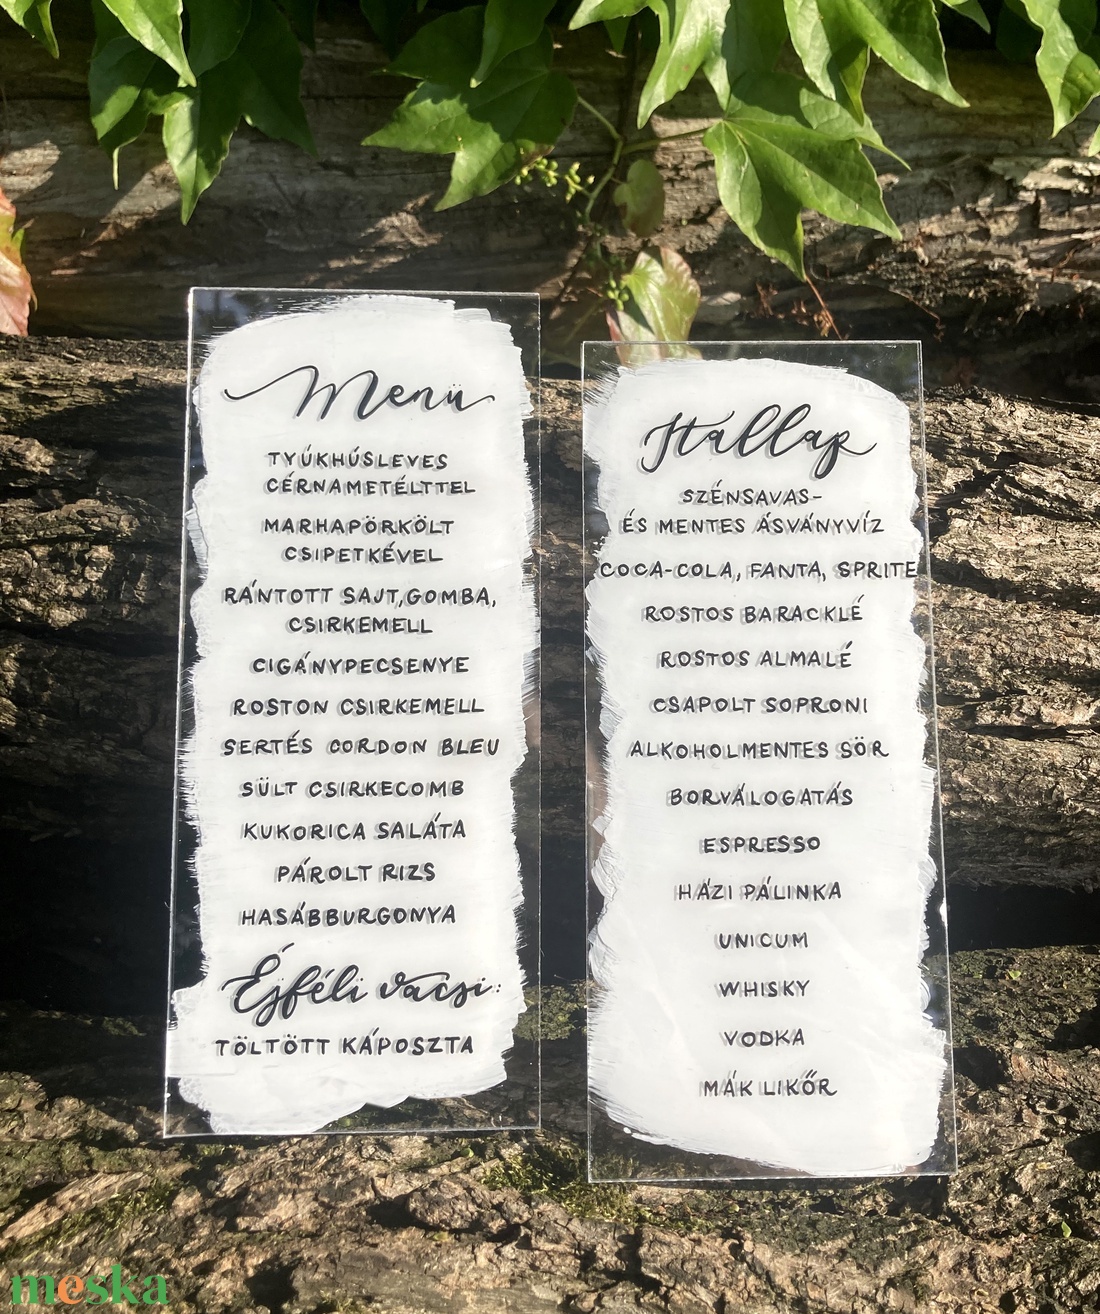 Menü
TYÚKHÚSLEVES
CÉRNAMETÉLTTEL
MARHAPÖRKÖLT
CSIPETKÉVEL
RÁNTOTT SAJT,GOMBA,
CSIRKEMELL
CIGÁNYPECSENYE
ROSTON CSIRKEMELL
SERTÉS CORDON BLEU
SÜLT CSIRKECOMB
KUKORICA SALÁTA
PÁROLT RIZS
HASÁBBURGONYA
Éjféli vacsi:
TÖLTÖTT KÁPOSZTA
Itallap
SZÉNSAVAS-
ÉS MENTES ÁSVÁNYVÍZ
COCA-COLA, FANTA, SPRITE
ROSTOS BARACKLÉ
ROSTOS ALMALÉ
CSAPOLT SOPRONI
ALKOHOLMENTES SÖR
BORVÁLOGATÁS
ESPRESSO
HÁZI PÁLINKA
UNICUM
WHISKY
VODKA
MÁK LIKŐR
meska